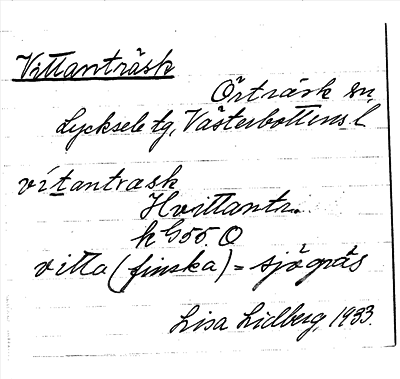 Vittanträsk
Örträsk sn,
Lycksele tg, Västerbottens l
vítantrask
Hvittantr..
k G55. O
vitta (finska) = sjögräs
Lisa Lidberg, 1933.